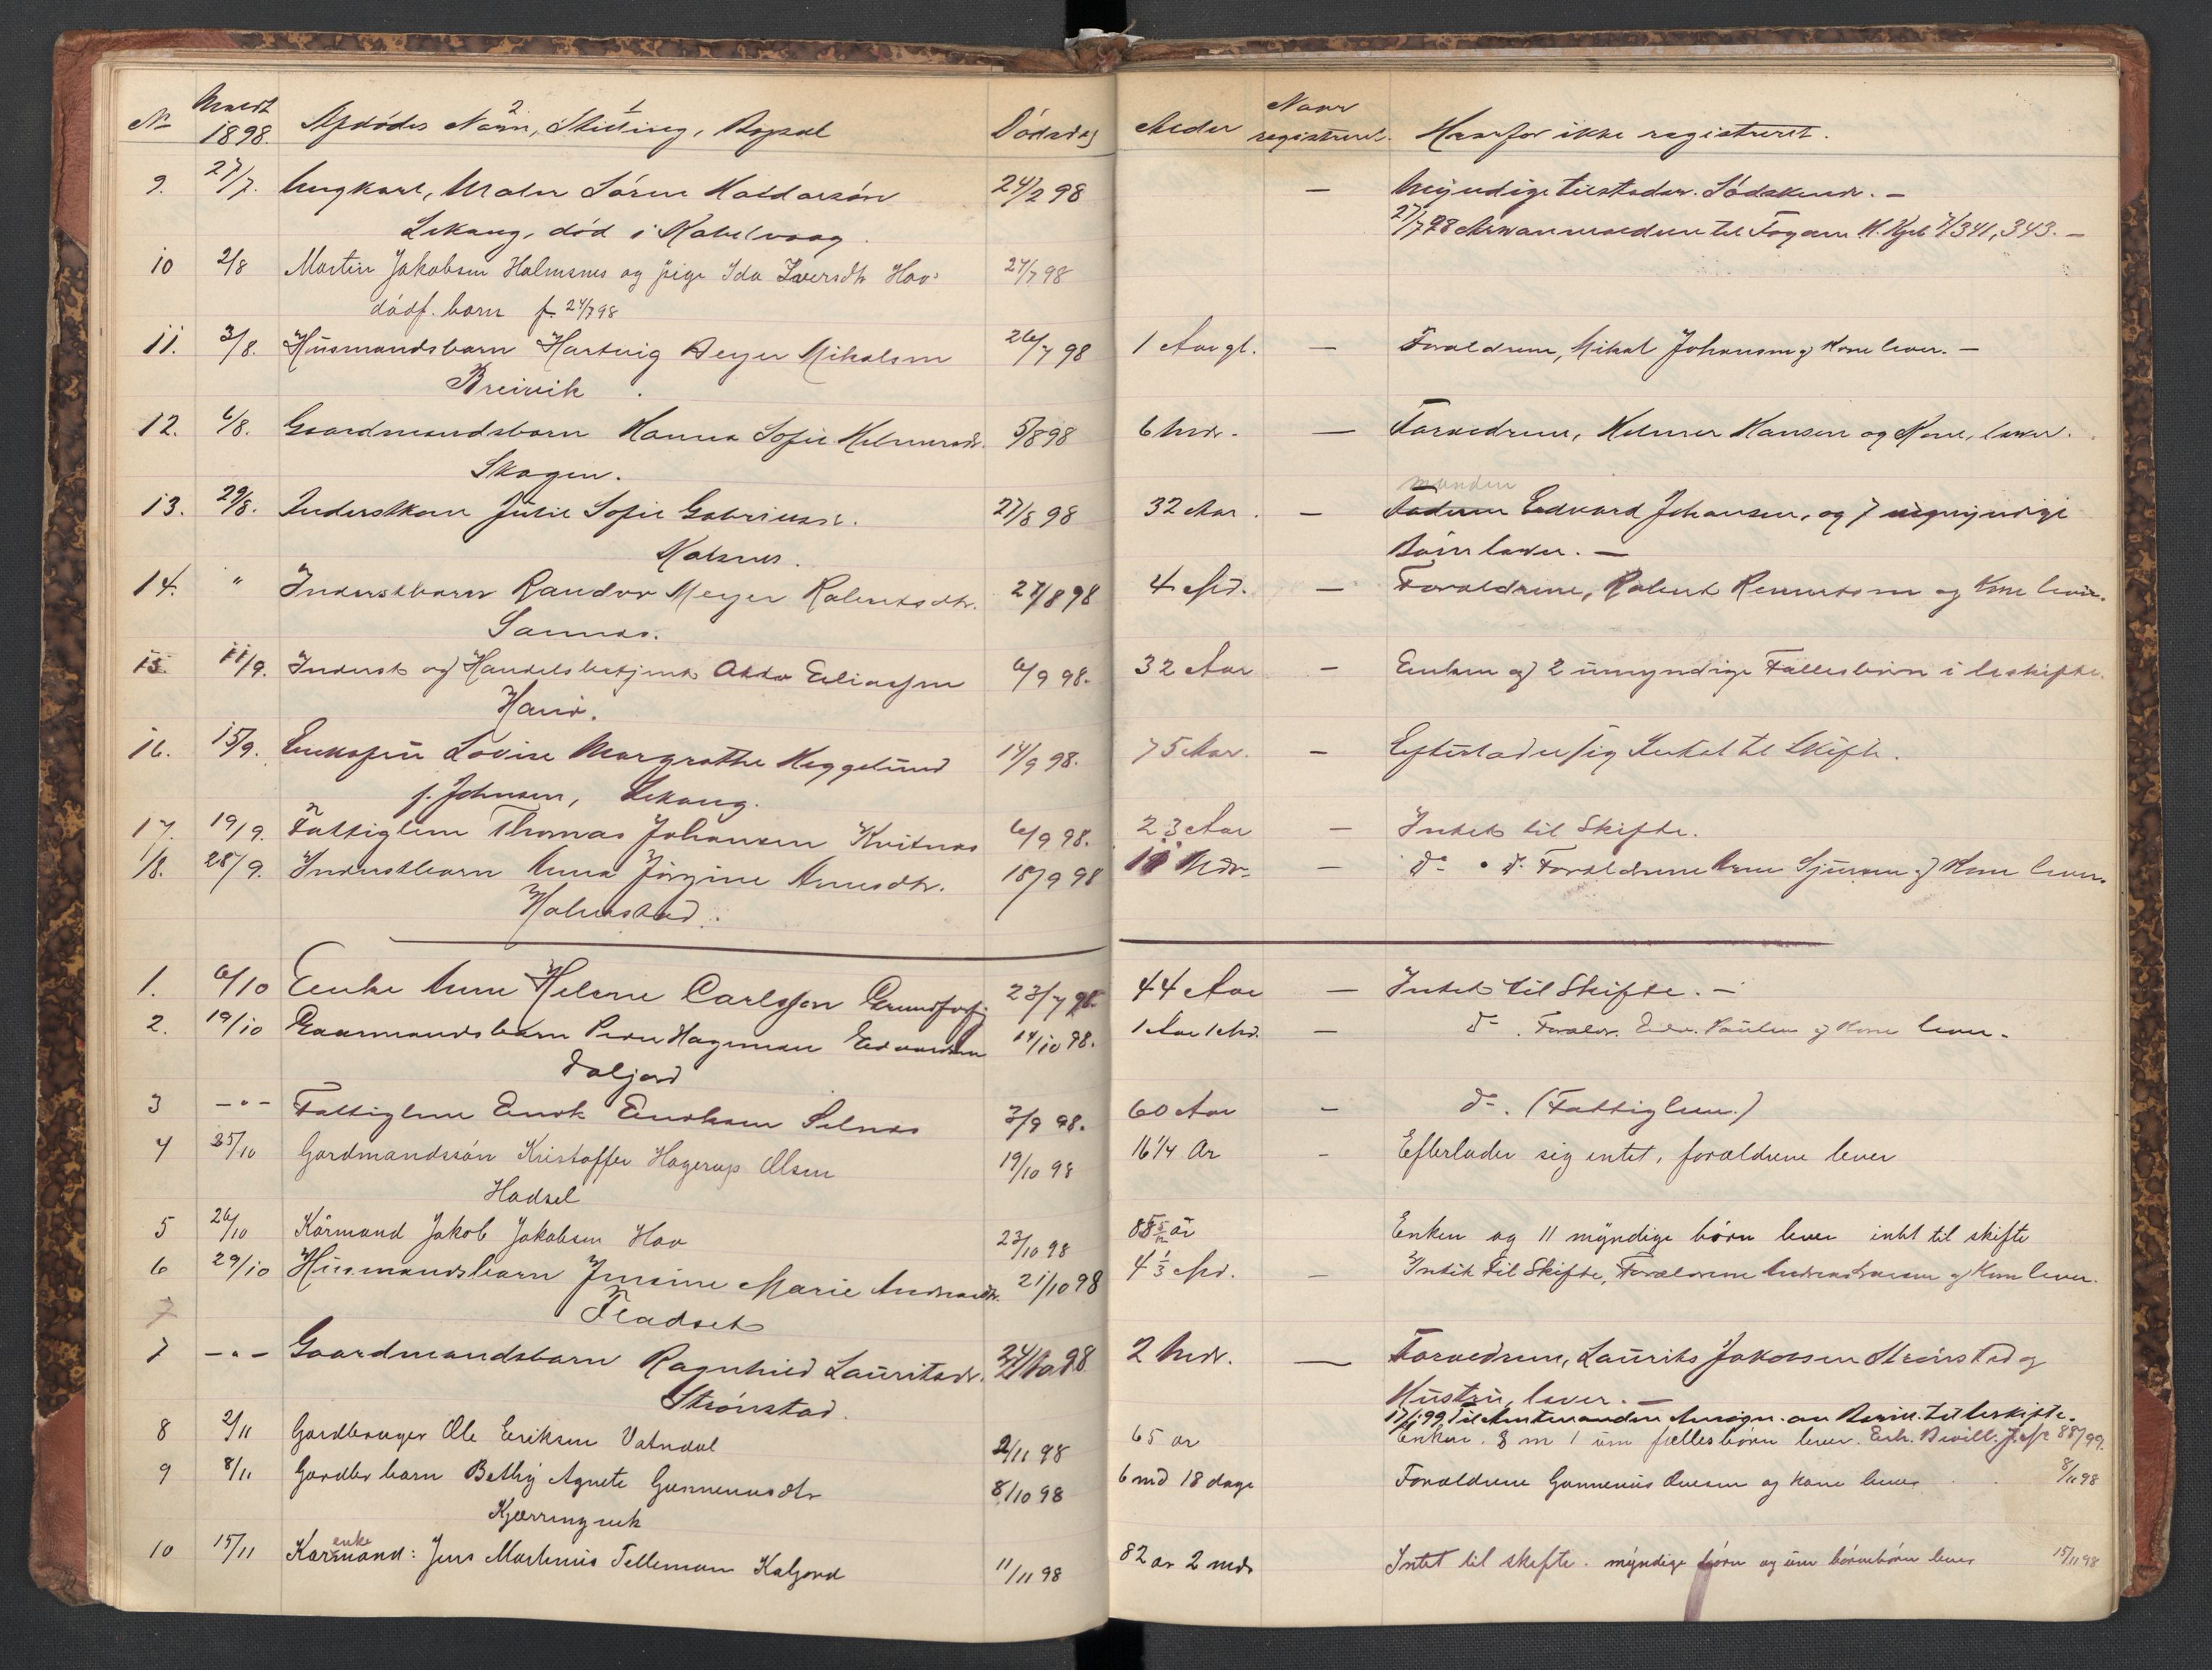 No Meldt 1898. Afdödes Navn, Stilling, Bopæl Dödsdag Alder Naar registreret. Hvorfor ikke registreret.
9. 27/7. Ungkarl, Maler Sören Haldorsön 24/2 98 — Myndige tilsteder. Södskende. —
Lekang, död i Kabelvaag. 27/7 98 til Fogden 341, 343. —
10 2/8 Martin Jakobsen Holmsnes og pige Ida Iversdtr Hov 24/7 98
dödf. barn f. 24/7 98
11. 3/8. Husmandsbarn Hartvig Meyer Mikalsen 26/7 98 1 Aar gl. — Forældrene, Mikal Johansen og Kone lever. —
Breivik.
12. 6/8. Gaardmandsbarn Hanna Sofie Helmersdr. 5/8 98 6 Mdr. — Forældrene, Helmer Hansen og Kone, lever.
Skagen.
manden
13. 29/8. Inderstkone Julie Sofie Gabrielsd. 27/8 98 32 Aar. — Faderen Edvard Johansen, og 7 umyndige
Kalsnes. Börn lever. —
14. " Inderstbarn Randor Meyer Robertsdtr. 27/8 98 4 Md. — Forældrene, Robert Reinertsen og Kone lever.
Sannes.
15 11/9. Inderst og Handelsbetjent Otto Eliassen 6/9 98. 32 Aar — Enken og 2 umyndige Fællesbörn i beskifte.
Hanö.
16. 15/9. Enkefru Lovise Margrethe Heggelund 14/9 98. 75 Aar. — Efterlader sig Intet til Skifte.
f. Johnsen, Lekang.
17. 19/9. Fattiglem Thomas Johansen Kvitnes 6/9 98. 23 Aar — Intet til Skifte.
18. 28/9. Inderstbarn Anna Jörgine Arnesdtr. 18/9 98 11 Mdr. — do do Forældrene Arne Sjursen og Kone lever.
Holmstad.
1. 6/10 Enke Anne Helene Carlsson Grundforfj 23/7 98. 44 Aar — Intet til Skifte. —
2. 19/10 Gaarmandsbarn Peder Hageman Edvardsen 14/10 98. 1 Aar 1 Md. — do. Forældr. Edv. Paulsen og Kone lever.
Daljord
3 -"- Fattiglem Enok Enoksen Selnes 3/9 98. 60 Aar — do. (Fattiglem.)
4 25/10 Gardmandssön Kristoffer Hagerup Olsen 19/10 98 16 1/4 Ar — Efterlader sig intet, forældrene lever
Hadsel
5 26/10 Kårmand Jakob Jakobsen Hov 23/10 98 88 5/12 år Enken og 11 myndige börn lever intet til skifte
6 29/10 Husmandsbarn Jensine Marie Andreasdtr. 21/10 98 4 1/3 Md. — Intet til Skifte, Forældrene og Kone lever.
7 Fladset
7 -"- Gaardmandsbarn Ragnhild Lauritsdr. 24/10 98 2 Mdr. — Forældrene, Laurits Jakobsen Strönstad og
Strönstad. Hustru, lever. —
17/1 99 Til Amtmanden om Bevill. til beskifte.
8 2/11 Gardbruger Ole Eriksen Vatndal 2/11 98 65 ar Enken. 8 m 1 um fællesbörn lever. Erh. Bevill. 88/99.
9 8/11 Gardbr barn Bethy Agnete Gunneriusdtr 8/10 98 6 md 18 dage Forældrene Gunnerius Ovesen og kone lever 8/11 98
Kjærringvik
enke
10 15/11 Karmand: Jens Martenus Tellemann Kaljord 11/11 98 82 ar 2 mdr Intet til skefte. myndige börn og um börnebörn lever 15/11 98